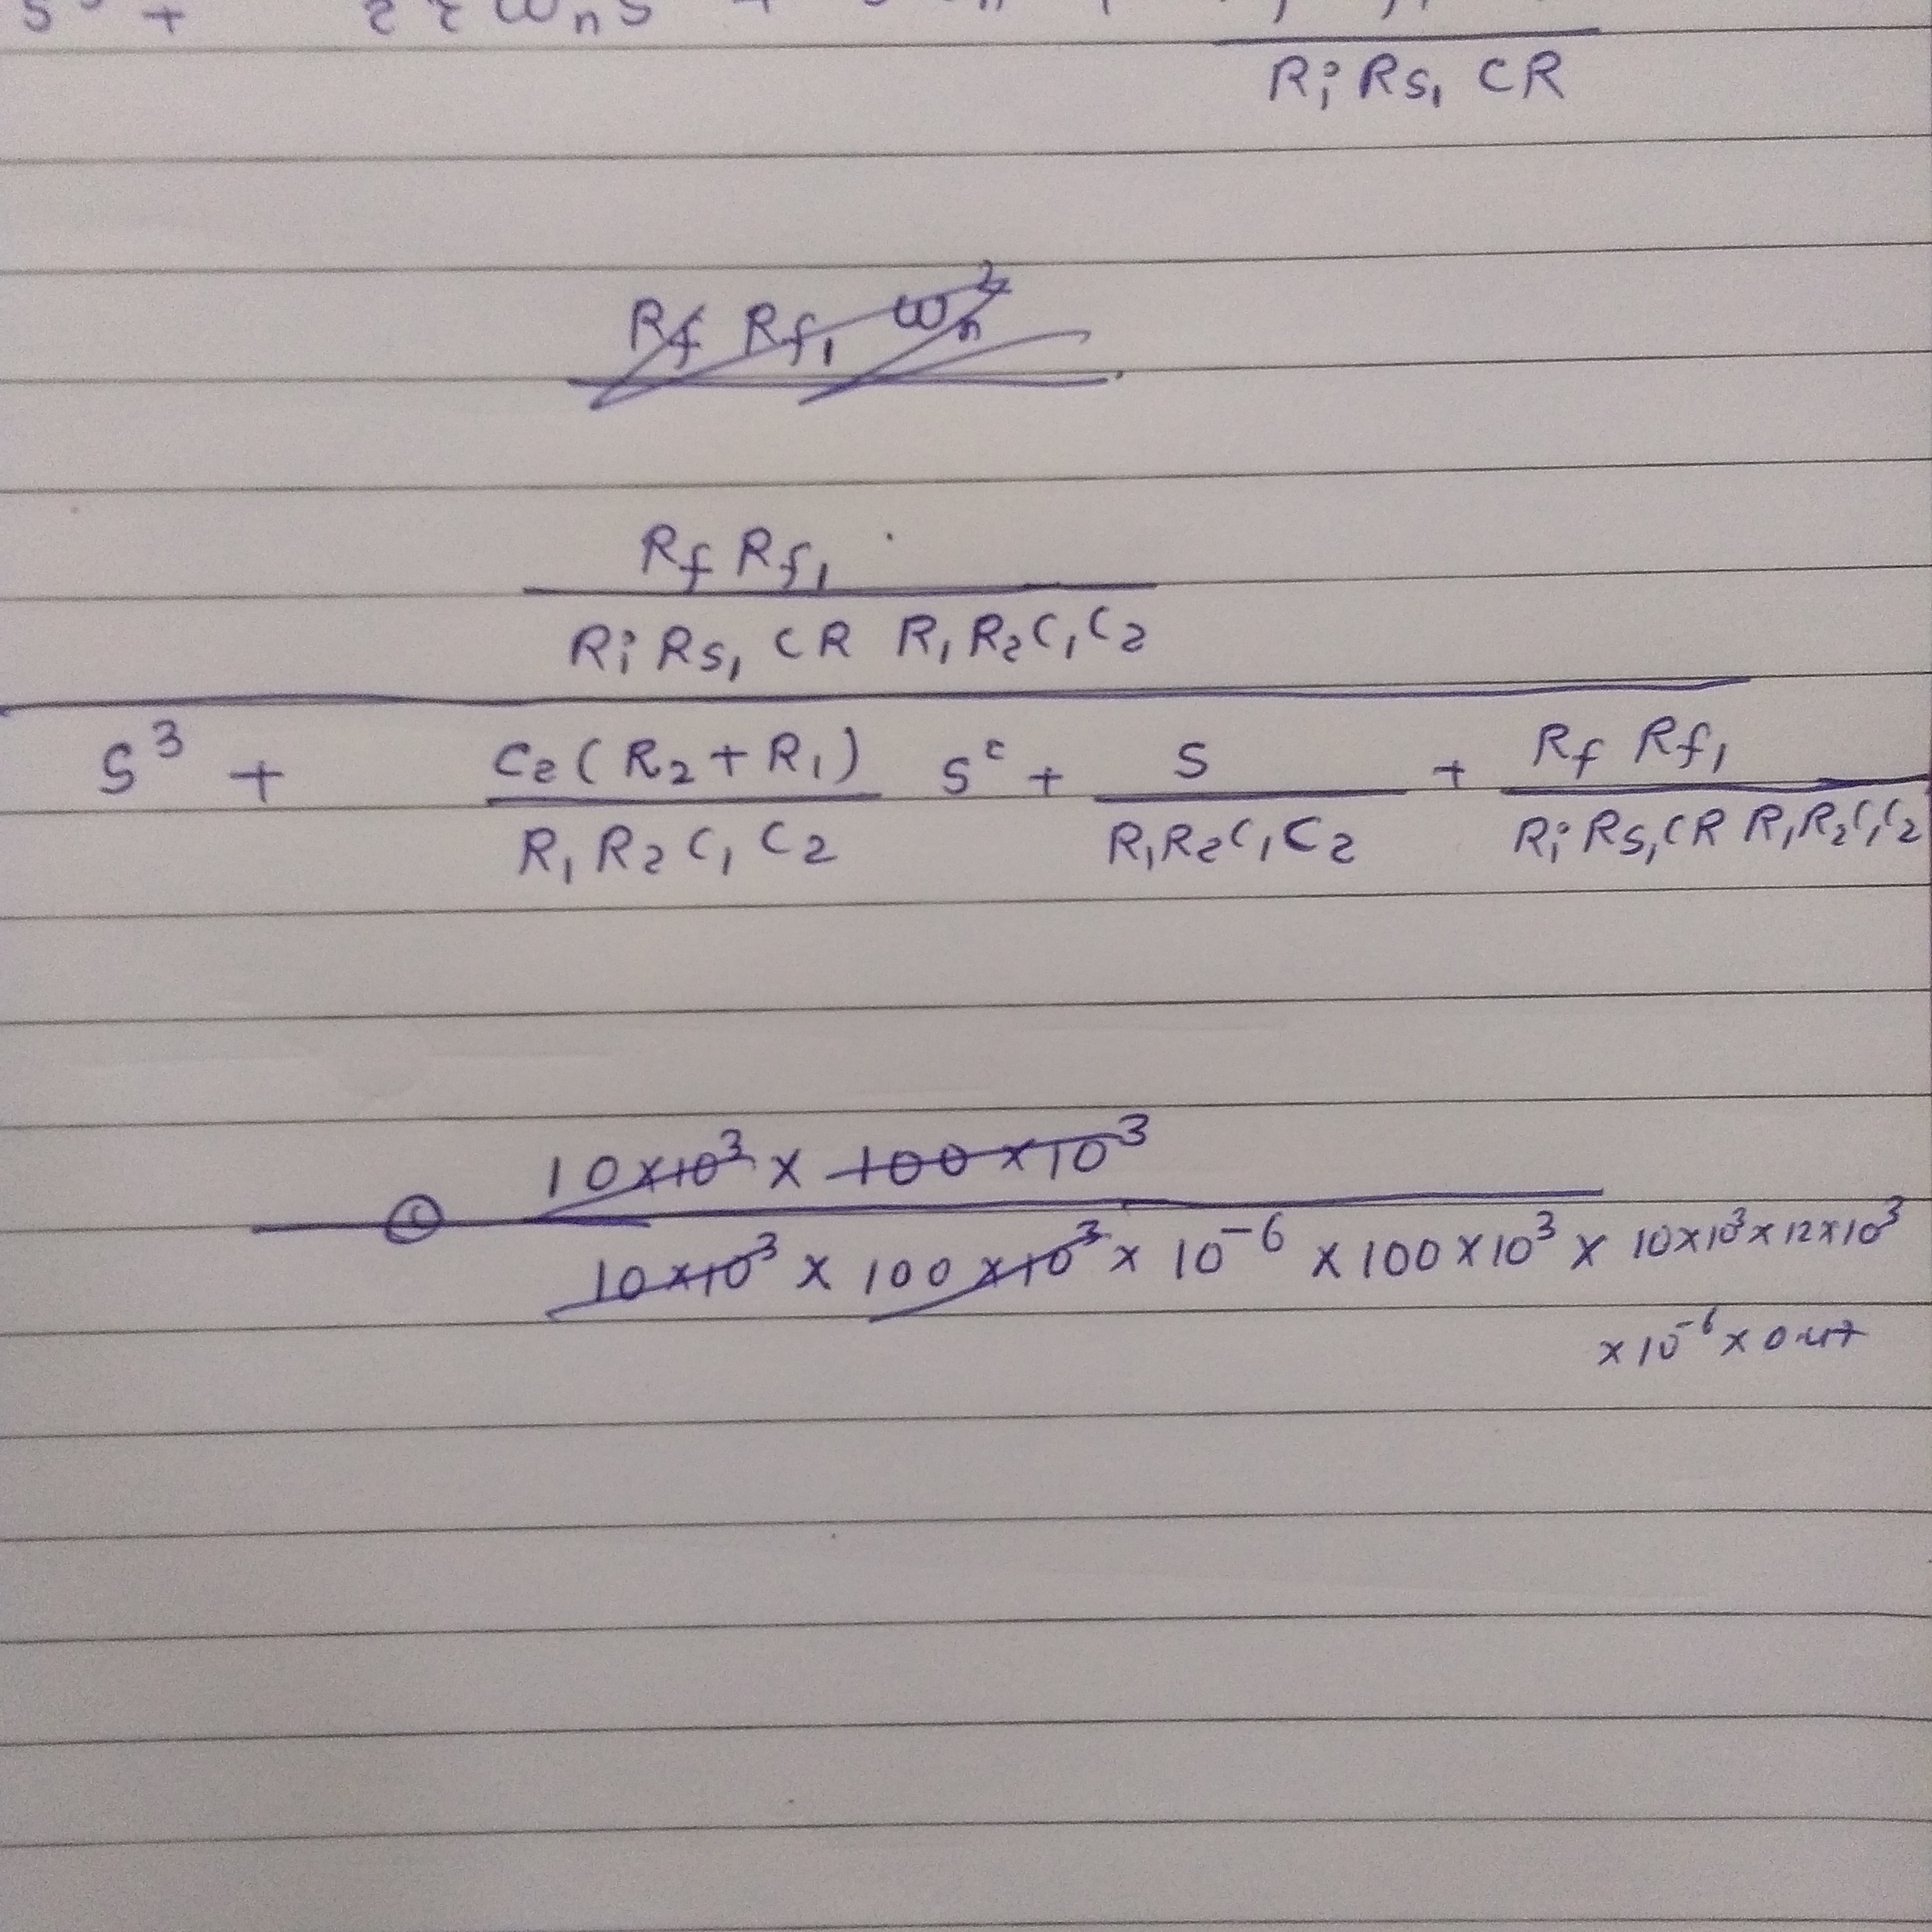 S³ + 2ζωₙS +
Ri Rs₁ CR
Rf Rf₁ ωₙ²
Rf Rf₁
Ri Rs₁ CR R₁R₂C₁C₂
S³ + C₂(R₂+R₁) S² + S + Rf Rf₁
R₁R₂C₁C₂ R₁R₂C₁C₂ Ri Rs₁CR R₁R₂C₁C₂
10×10³ × 100×10³
10×10³ × 100×10³ × 10⁻⁶ × 100×10³ × 10×10³×12×10³
×10⁻⁶×0.47